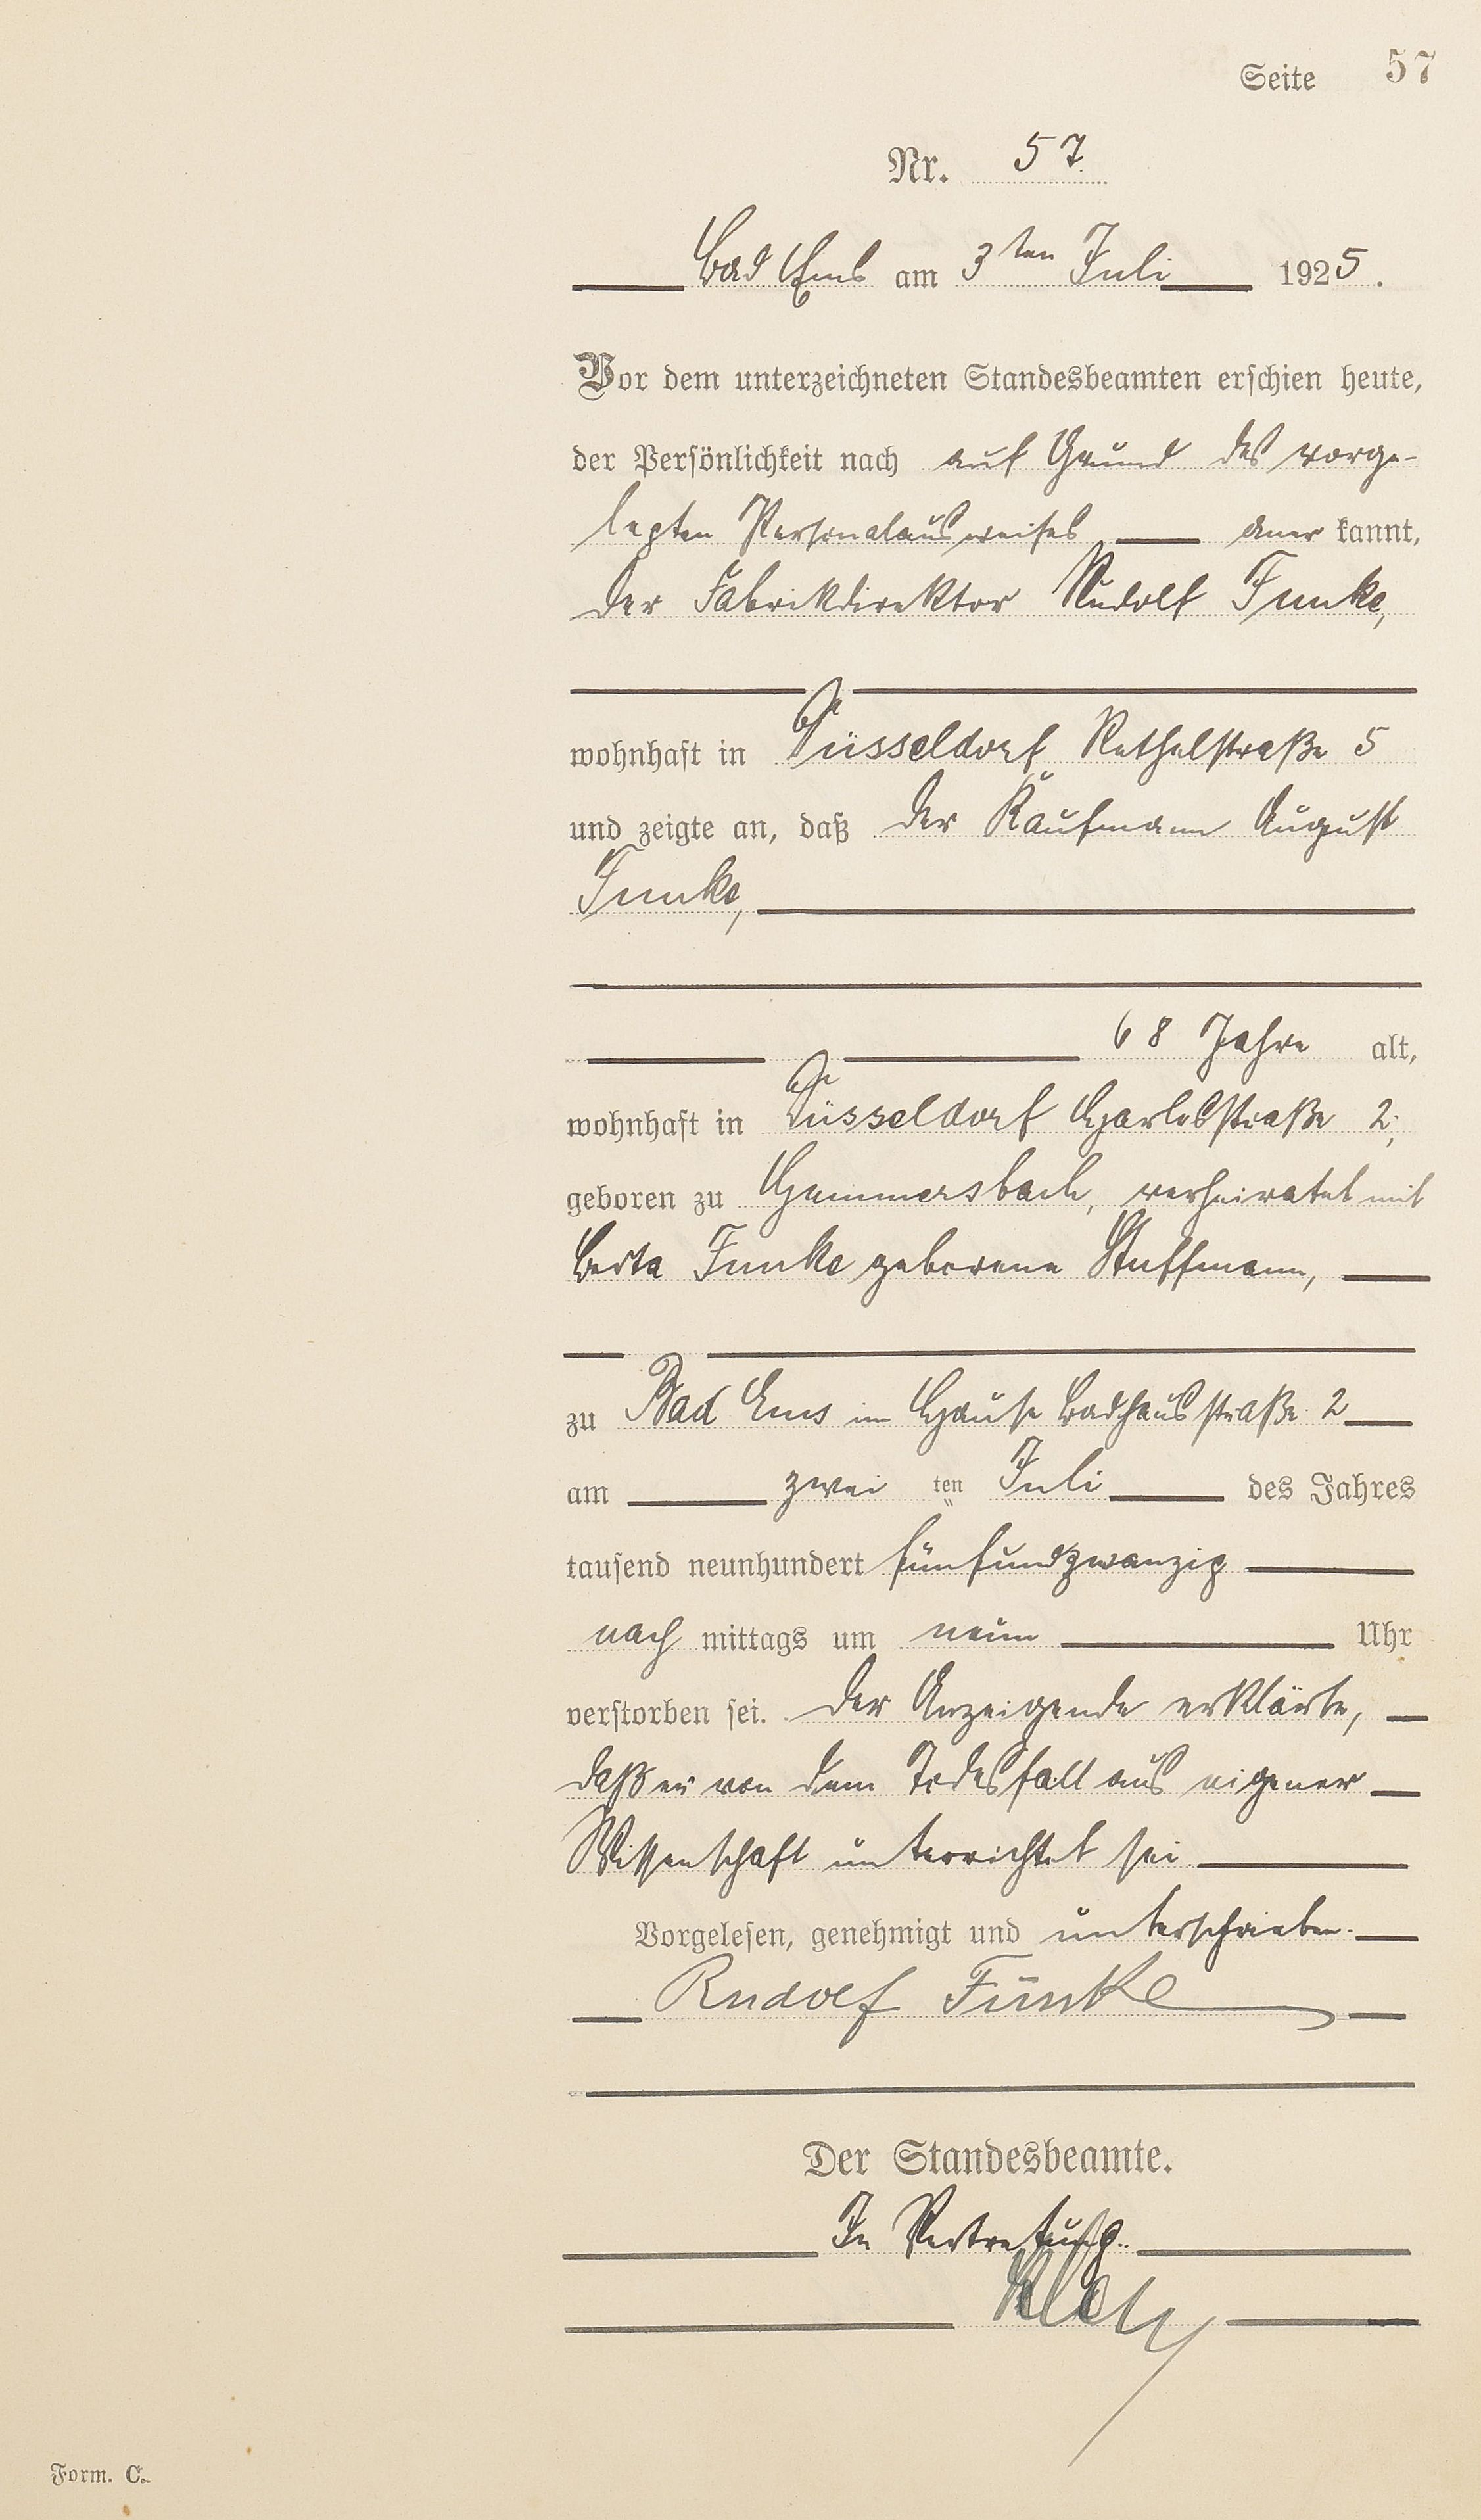 Seite 57
Nr. 57.
Bad Ems am 3ten Juli 1925.
Vor dem unterzeichneten Standesbeamten erschien heute,
der Persönlichkeit nach auf Grund des vorge-
legten Personalausweises aner kannt,
der Fabrikdirektor Rudolf Funke,
wohnhaft in Düsseldorf Rethelstraße 5
und zeigte an, daß der Kaufmann August
Funke,
68 Jahre alt,
wohnhaft in Düsseldorf straße 2,
geboren zu Gummersbach, verheiratet mit
Berta Funke geborene
zu Bad Ems im Hause Badhausstraße 2
am zwei ten Juli des Jahres
tausend neunhundert fünfundzwanzig
nach mittags um neun Uhr
verstorben sei. Der Anzeigende erklärte,
daß er von dem Todesfall aus eigener
Wissenschaft unterrichtet sei.
Vorgelesen, genehmigt und unterschrieben.
Rudolf Funke
Der Standesbeamte.
In Vertretung.
Form. C.